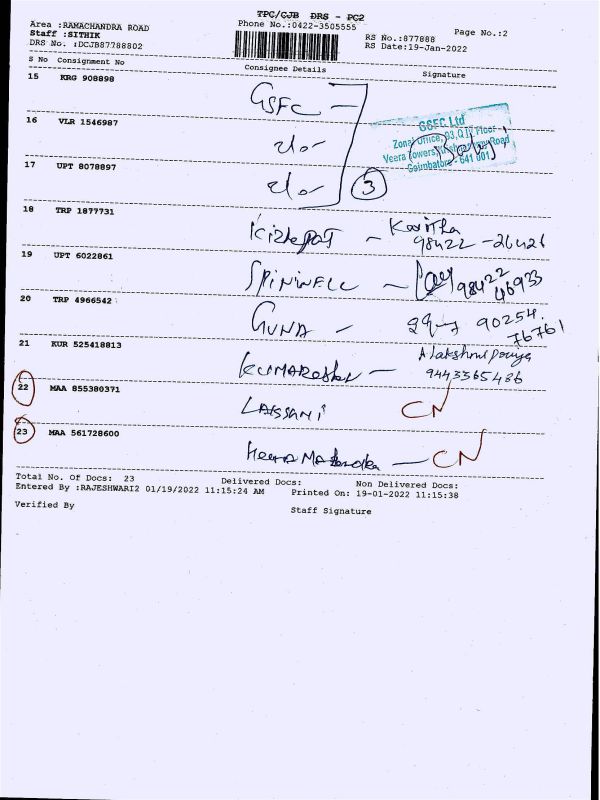 TPC/CJB DRS - PC2
Area :RAMACHANDRA ROAD
Phone No.:0422-3505555
Page No.:2
Staff :SITHIK
RS No.:877888
DRS No. :DCJB87788802
RS Date:19-Jan-2022
S No Consignment No Consignee Details Signature
15 KRG 908898
GSFC
16 VLR 1546987
GSFC Ltd
17 UPT 8078897
Coimbatore - 641 001
3
18 TRP 1877731
Kavitha
98422 - 26426
19 UPT 6022861
SPINWELL
98422
46933
20 TRP 4966542
GUNA
90254
76761
21 KUR 525418813
9443365486
22 MAA 855380371
CN
23 MAA 561728600
CN
Total No. Of Docs: 23 Delivered Docs: Non Delivered Docs:
Entered By :RAJESHWARI2 01/19/2022 11:15:24 AM Printed On: 19-01-2022 11:15:38
Verified By
Staff Signature